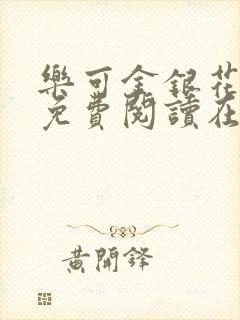 樂可金銀花
免費閱讀在
黃開鋒